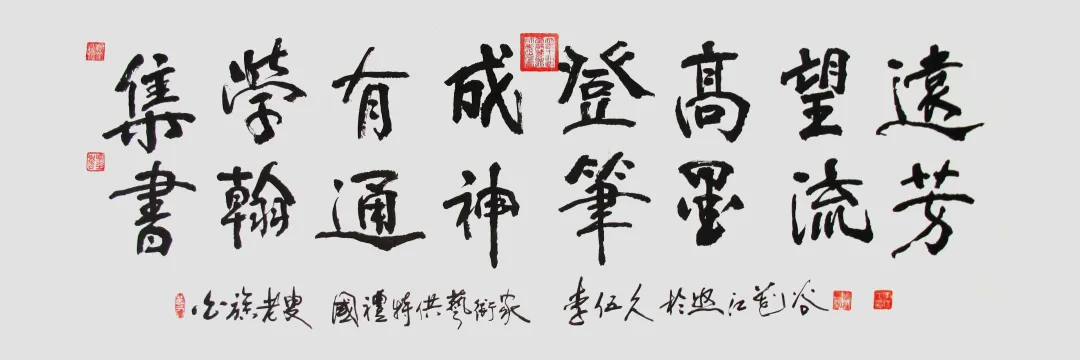 集學有成登高望遠
書翰通神筆墨流芳
白族老叟 國禮特供藝術家 李伍久於怒江谷